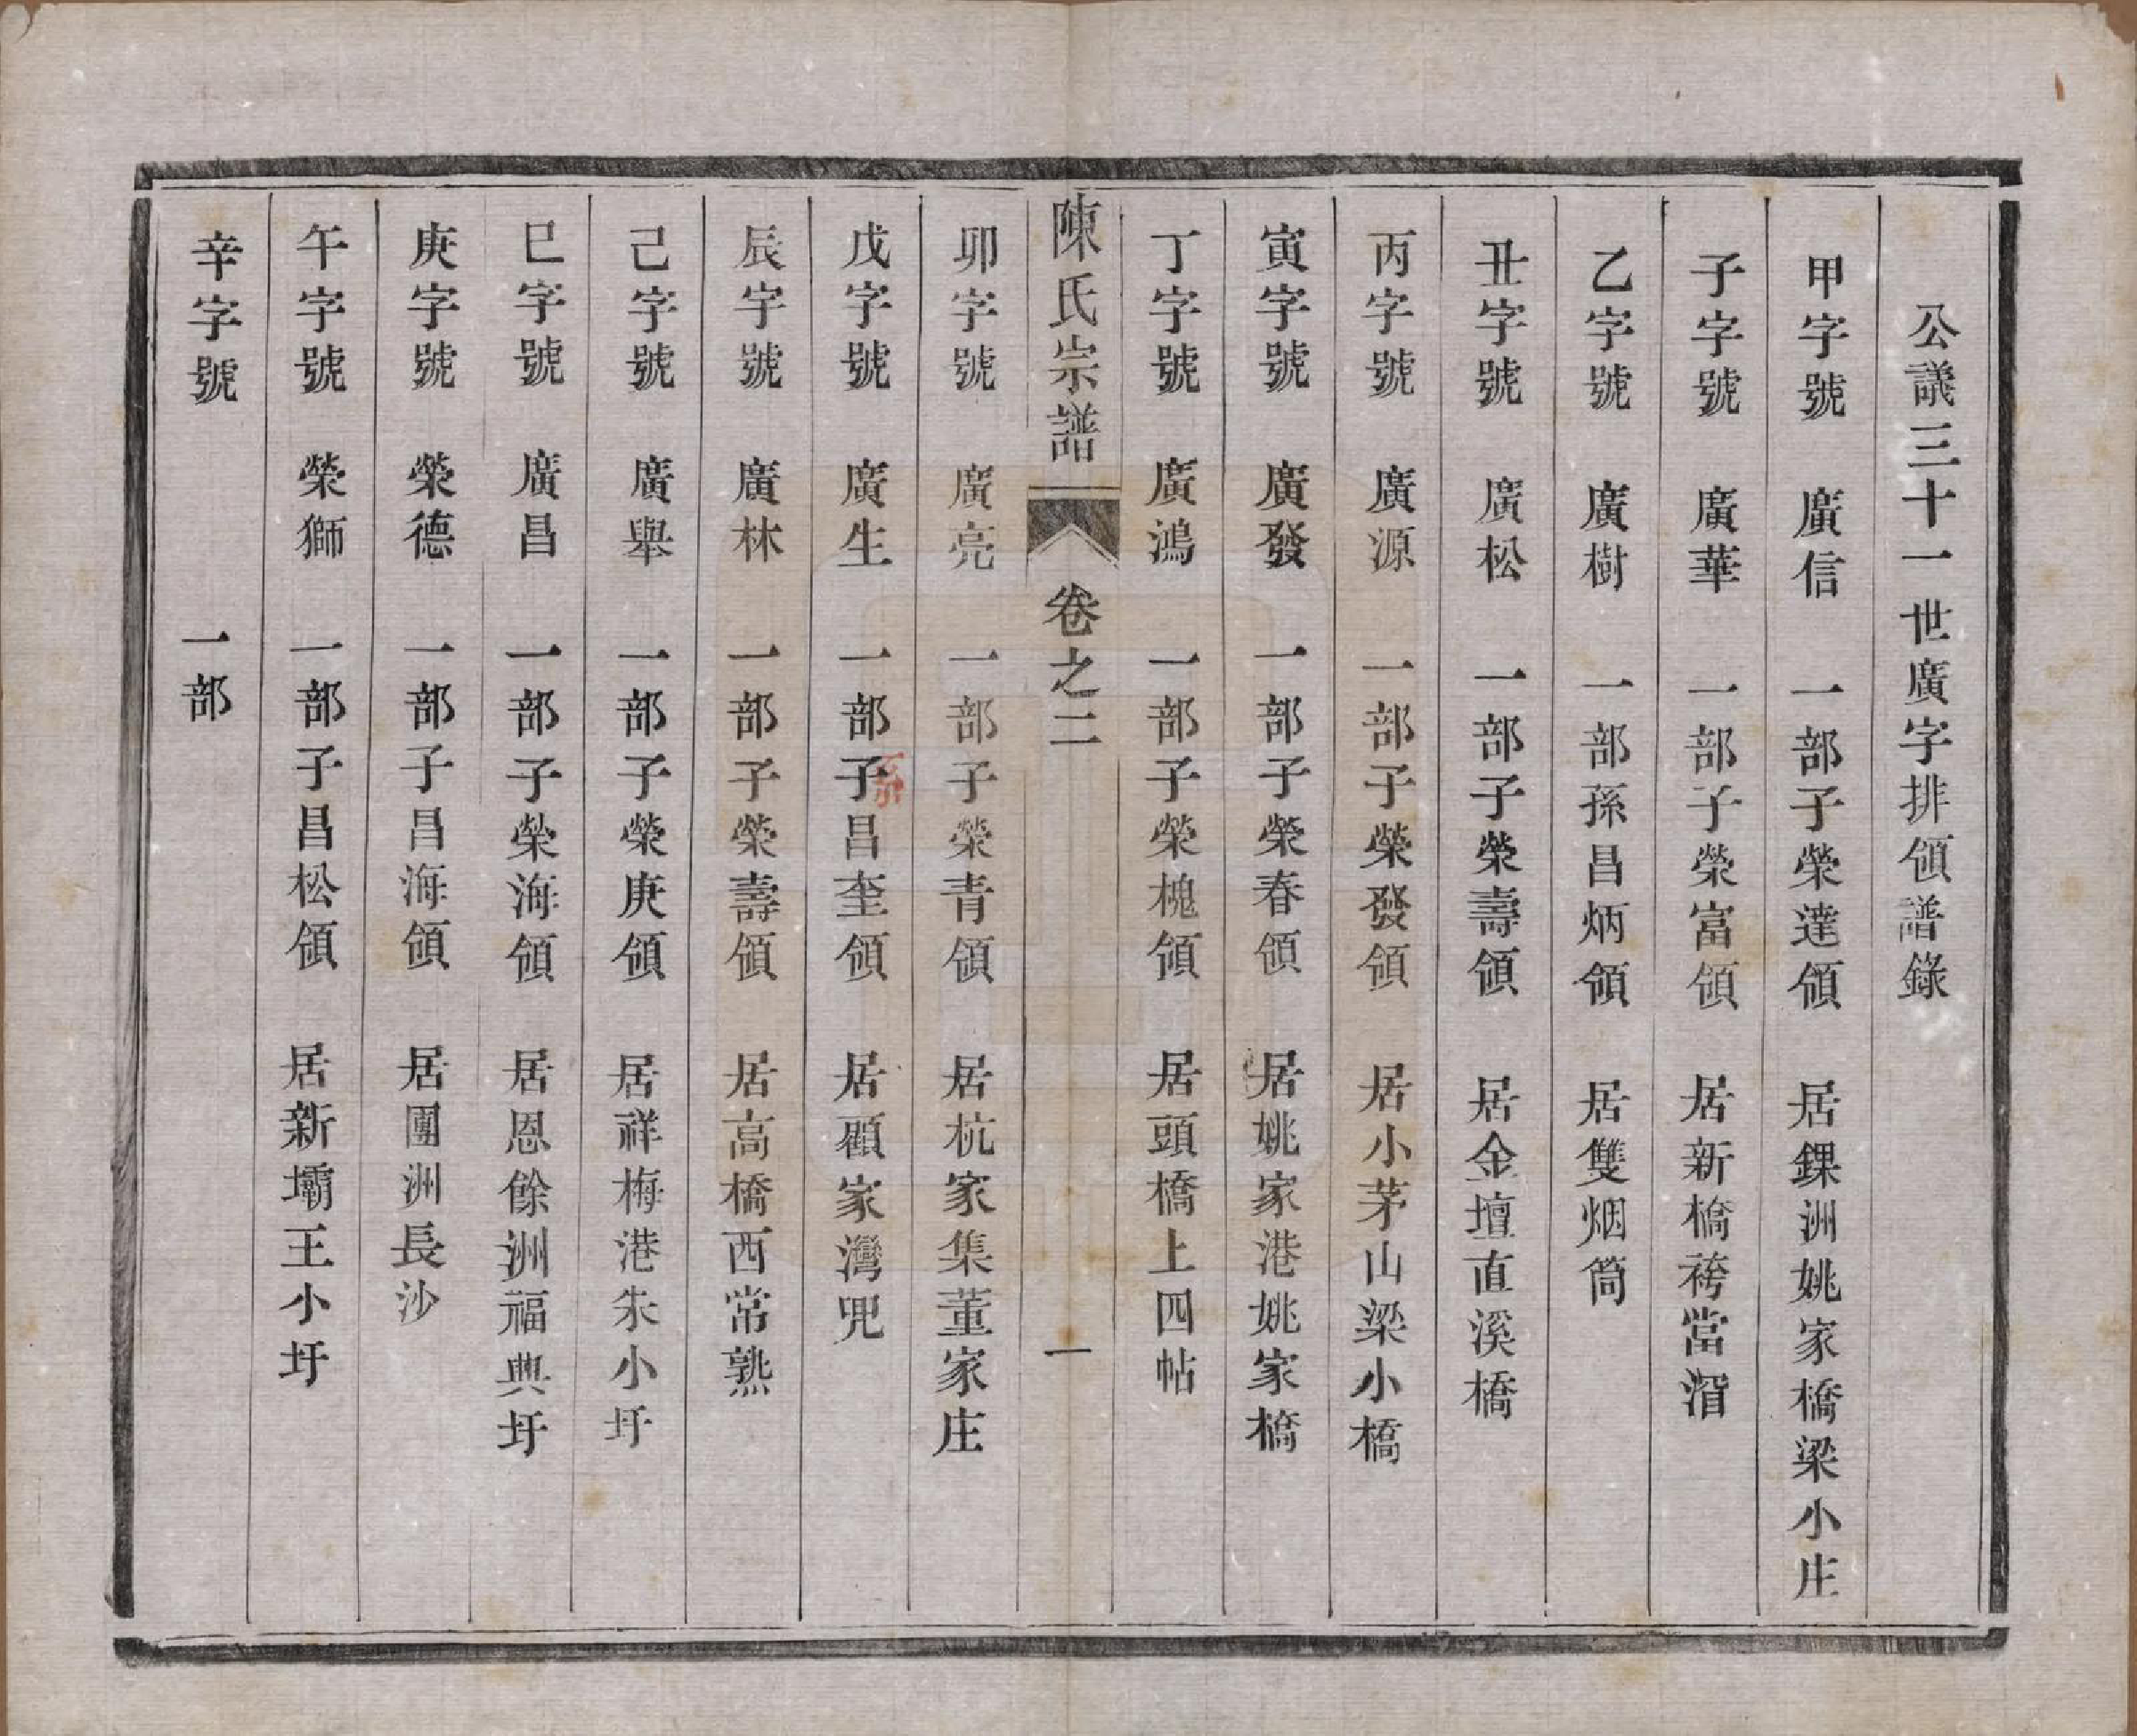 公議三十一世廣字排領譜錄
甲字號　廣信　一部子榮達領　居錁洲姚家橋梁小庄
子字號　廣華　一部子榮富領　居新橋袴當湑
乙字號　廣樹　一部孫昌炳領　居雙烟筒
丑字號　廣松　一部子榮壽領　居金壇直溪橋
丙字號　廣源　一部子榮發領　居小茅山梁小橋
寅字號　廣發　一部子榮春領　居姚家港姚家橋
丁字號　廣鴻　一部子榮槐領　居頭橋上四帖
陳氏宗譜　卷之二　一
卯字號　廣亮　一部子榮青領　居杭家集董家庄
戊字號　廣生　一部子昌奎領　居顧家灣兜
辰字號　廣林　一部子榮壽領　居高橋西常熟
己字號　廣舉　一部子榮庚領　居祥梅港朱小圩
巳字號　廣昌　一部子榮海領　居恩餘洲福興圩
庚字號　榮德　一部子昌海領　居團洲長沙
午字號　榮獅　一部子昌松領　居新壩王小圩
辛字號　一部